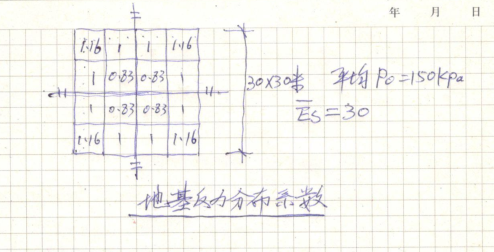 年 月 日
1.16 1 1 1.16
1 0.83 0.83 1
1 0.83 0.83 1
1.16 1 1 1.16
30×30米
平均 P₀=150kpa
E̅s=30
地基反力分布系数